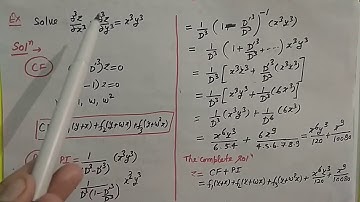 Ex Solve ∂³z/∂x³ ∂³z/∂y³ = x³y³
Solⁿ →
CF
D'³)z=0
-1)z=0
1, w, w²
f₁(y+x)+f₂(y+wx)+f₃(y+w²x)
PI = 1/(D³-D'³) (x³y³)
1/D³(1-D'³/D³) (x³y³)
= 1/D³ (1 - D'³/D³)⁻¹ (x³y³)
= 1/D³ (1 + D'³/D³ + ...) x³y³
= 1/D³ [x³y³ + D'³/D³ (x³y³)]
= 1/D³ [x³y³ + 1/D³ (6x³)]
= 1/D³ (x³y³) + 1/D⁶ (6x³)
= x⁶y³/6.5.4 + 6x⁹/4.5.6.7.8.9 = x⁶y³/120 + x⁹/10080
The complete solⁿ
z = CF + PI
= f₁(y+x)+f₂(y+wx)+f₃(y+w²x)+ x⁶y³/120 + x⁹/10080